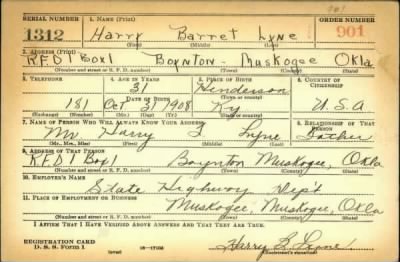 901
SERIAL NUMBER 1. NAME (Print) ORDER NUMBER
1312 Harry Barret Lyne 901
(First) (Middle) (Last)
2. ADDRESS (Print)
R.F.D 1 Box 1 Boynton - Muskogee Okla
(Number and street or R. F. D. number) (Town) (County) (State)
3. TELEPHONE 4. AGE IN YEARS 5. PLACE OF BIRTH 6. COUNTRY OF CITIZENSHIP
31 Henderson
DATE OF BIRTH (Town or county)
181 Oct 31 1908 Ky U.S.A
(Exchange) (Number) (Mo.) (Day) (Yr.) (State or country)
7. NAME OF PERSON WHO WILL ALWAYS KNOW YOUR ADDRESS 8. RELATIONSHIP OF THAT PERSON
Mr Harry Lyne Father
(Mr., Mrs., Miss) (First) (Middle) (Last)
9. ADDRESS OF THAT PERSON
R.F.D 1 Box 1 Boynton Muskogee, Okla
(Number and street or R. F. D. number) (Town) (County) (State)
10. EMPLOYER'S NAME
State Highway Dep't
11. PLACE OF EMPLOYMENT OR BUSINESS
Muskogee, Muskogee, Okla
(Number and street or R. F. D. number) (Town) (County) (State)
I AFFIRM THAT I HAVE VERIFIED ABOVE ANSWERS AND THAT THEY ARE TRUE.
REGISTRATION CARD
D. S. S. Form 1 (over) Harry B. Lyne
(Registrant's signature)